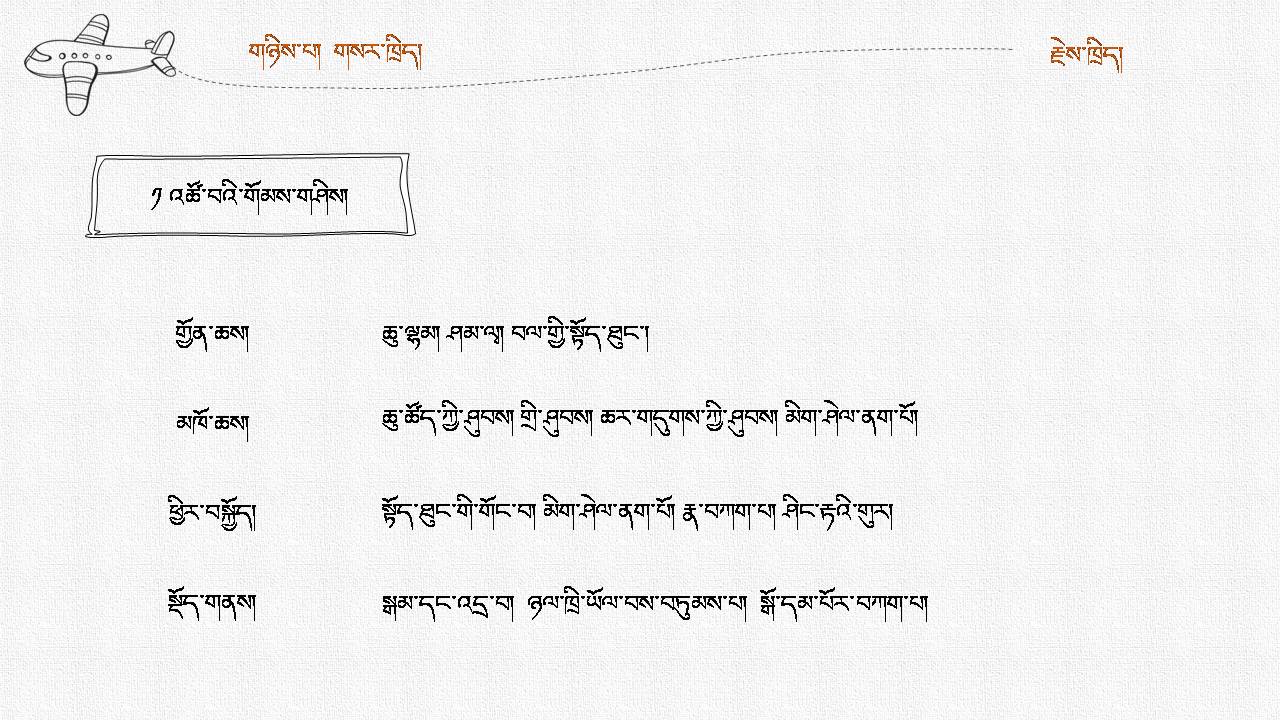 གཉིས་པ། གསར་ཁྲིད། རྗེས་ཁྲིད།
༡ འཚོ་བའི་གོམས་གཤིས།
གྱོན་ཆས། ཆུ་ལྷམ། ཤམ་ལྭ། བལ་གྱི་སྟོད་ཐུང་།
མཁོ་ཆས། ཆུ་ཚོད་ཀྱི་ཤུབས། གྲི་ཤུབས། ཆར་གདུགས་ཀྱི་ཤུབས། མིག་ཤེལ་ནག་པོ།
ཕྱིར་བསྐྱོད། སྟོད་ཐུང་གི་གོང་བ། མིག་ཤེལ་ནག་པོ། རྣ་བཀག་པ། ཤིང་རྟའི་གུར།
སྡོད་གནས། སྒམ་དང་འདྲ་བ། ཉལ་ཁྲི་ཡོལ་བས་བཏུམས་པ། སྒོ་དམ་པོར་བཀག་པ།